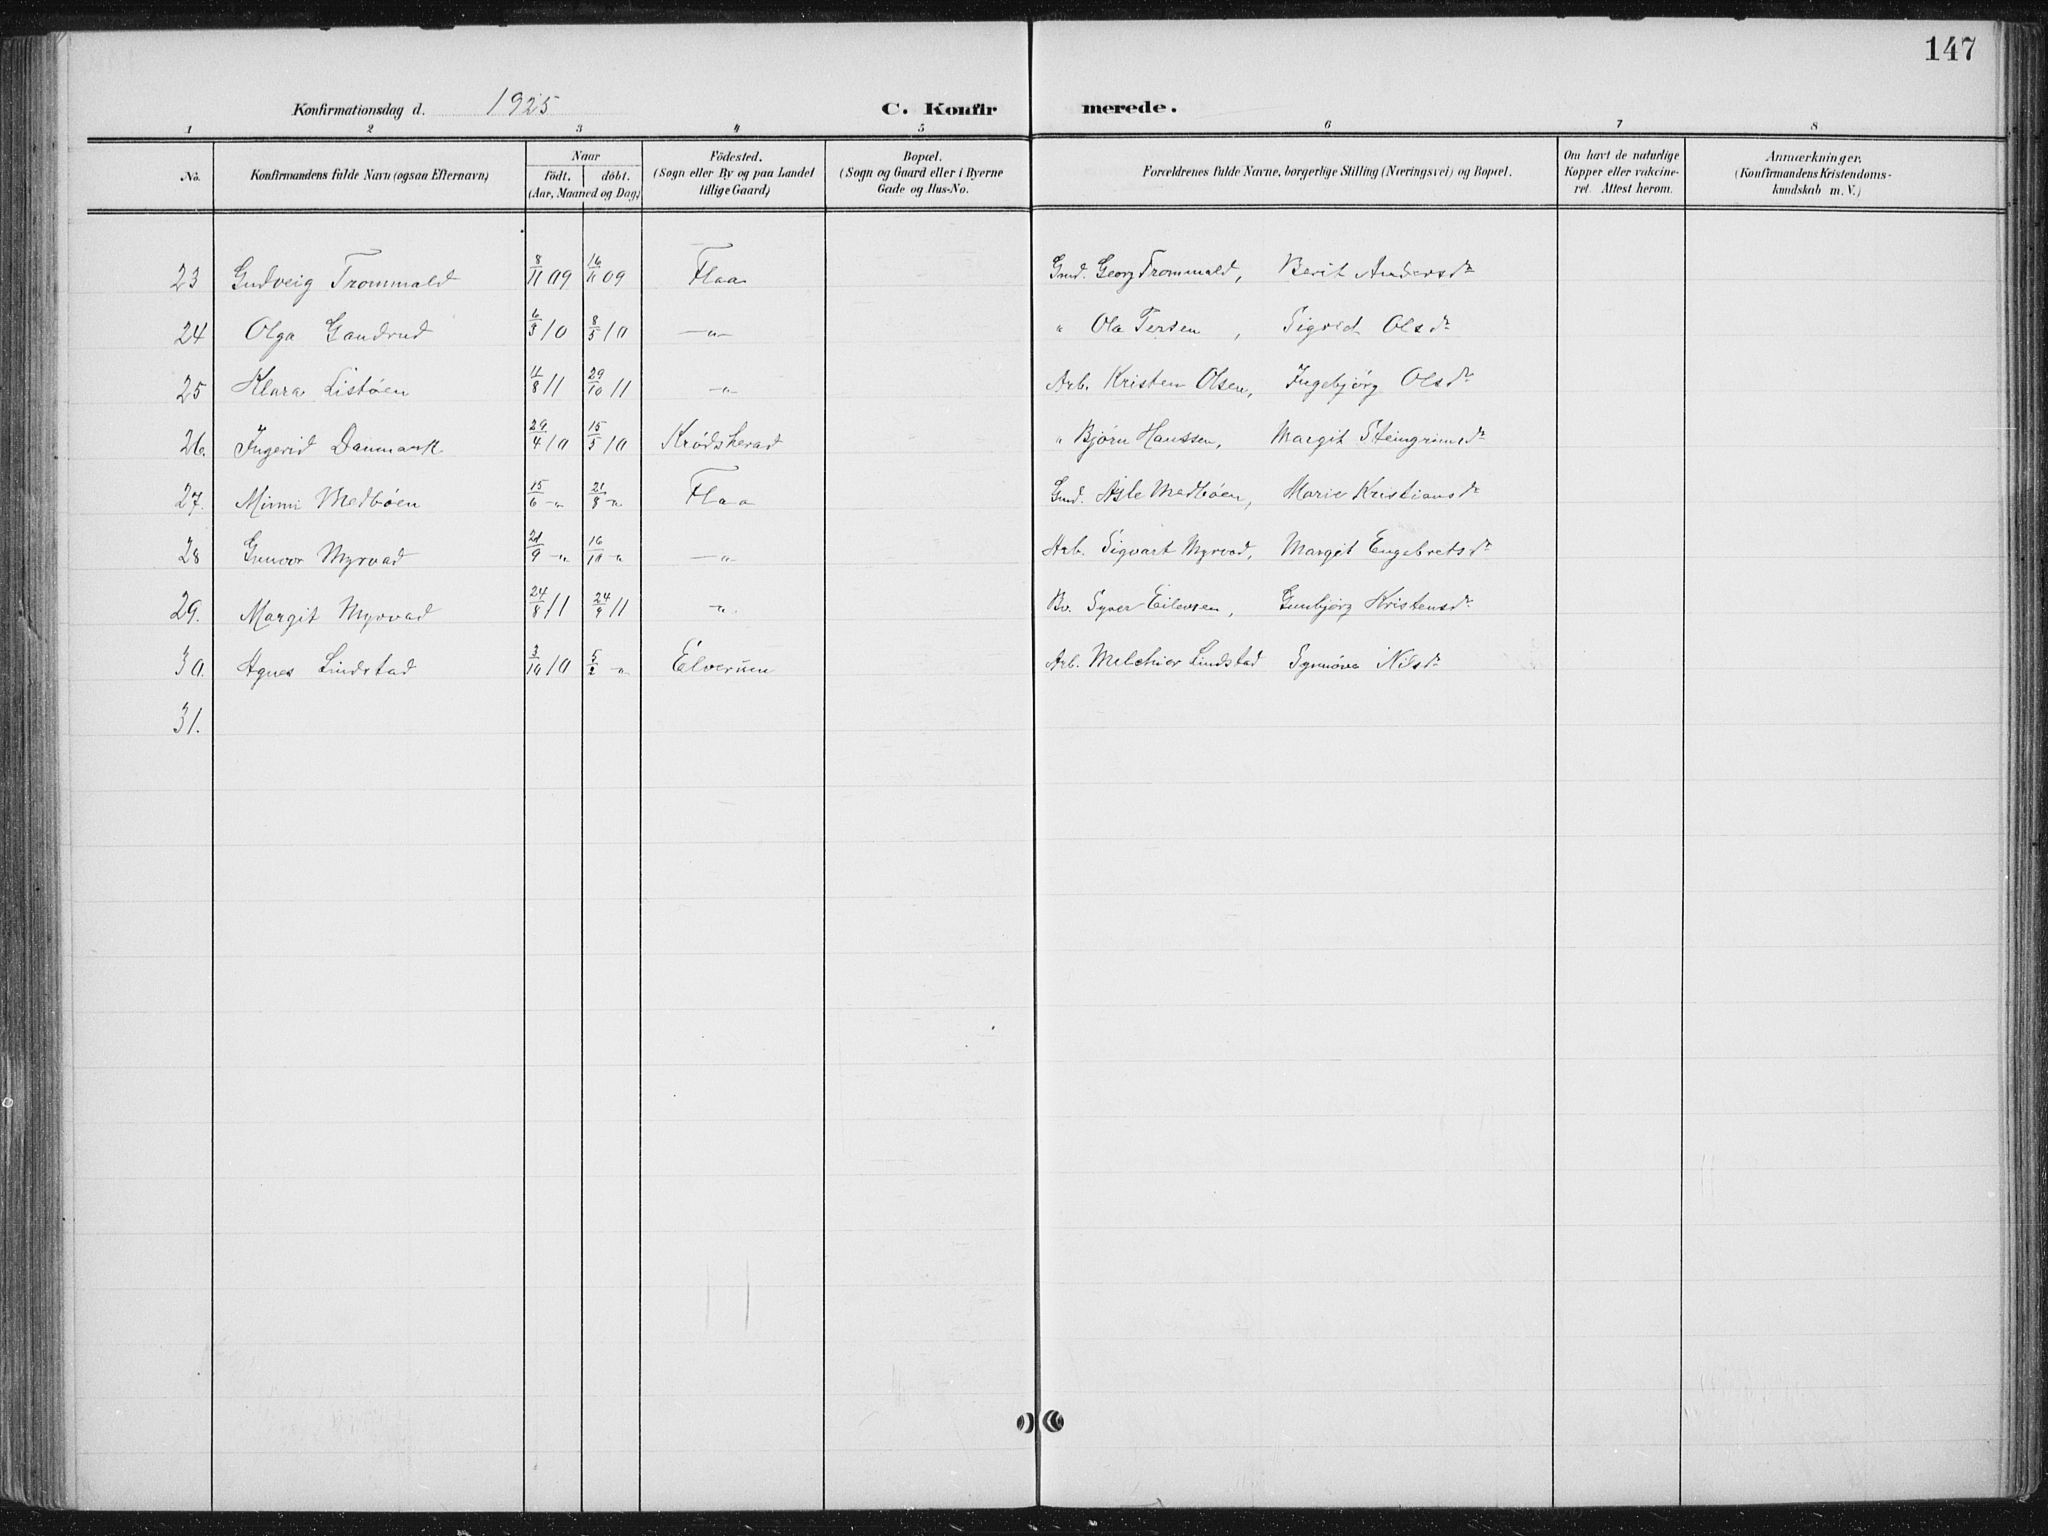 147
Konfirmationsdag d. 1925 C. Konfirmerede.
1 2 3 4 5 6 7 8
No. Konfirmandens fulde Navn (ogsaa Efternavn) Naar födt. döbt. (Aar, Maaned og Dag) Födested. (Sogn eller By og paa Landet tillige Gaard) Bopæl. (Sogn og Gaard eller i Byerne Gade og Hus-No. Forældrenes fulde Navne, borgerlige Stilling (Næringsvei) og Bopæl. Om havt de naturlige Kopper eller vakcineret. Attest herom. Anmærkninger. (Konfirmandens Kristendomskundskab m. V.)
23 Gudveig Trommald 8/11 09 16/11 09 Flaa Gmd. Georg Trommald, Berit Andersdr
24 Olga Gandrud 6/3 10 8/5 10 —"— " Ola Tersen, Sigrid Olsdr
25 Klara Listöen 11/8 11 29/10 11 —"— Arb. Kristen Olsen, Ingebjörg Olsdr
26. Ingerid Danmark 29/4 10 15/5 10 Krödsherad " Björn Hanssen, Margit Steingrimsdr
27. Mimi Medböen 15/6 —"— 21/8 —"— Flaa Gmd. Asle Medböen, Marie Kristiansdr
28 Gunvor Myrvad 21/9 —"— 16/10 —"— —"— Arb. Sigvart Myrvad, Margit Engebretsdr
29. Margit Myrvad 24/8 11 24/9 11 —"— Bv. Syver Eilevsen, Gunbjörg Kristensdr
30. Agnes Lindstad 3/10 10 5/2 —"— Elverum Arb. Melchior Lindstad Synnöve Nilsdr
31.